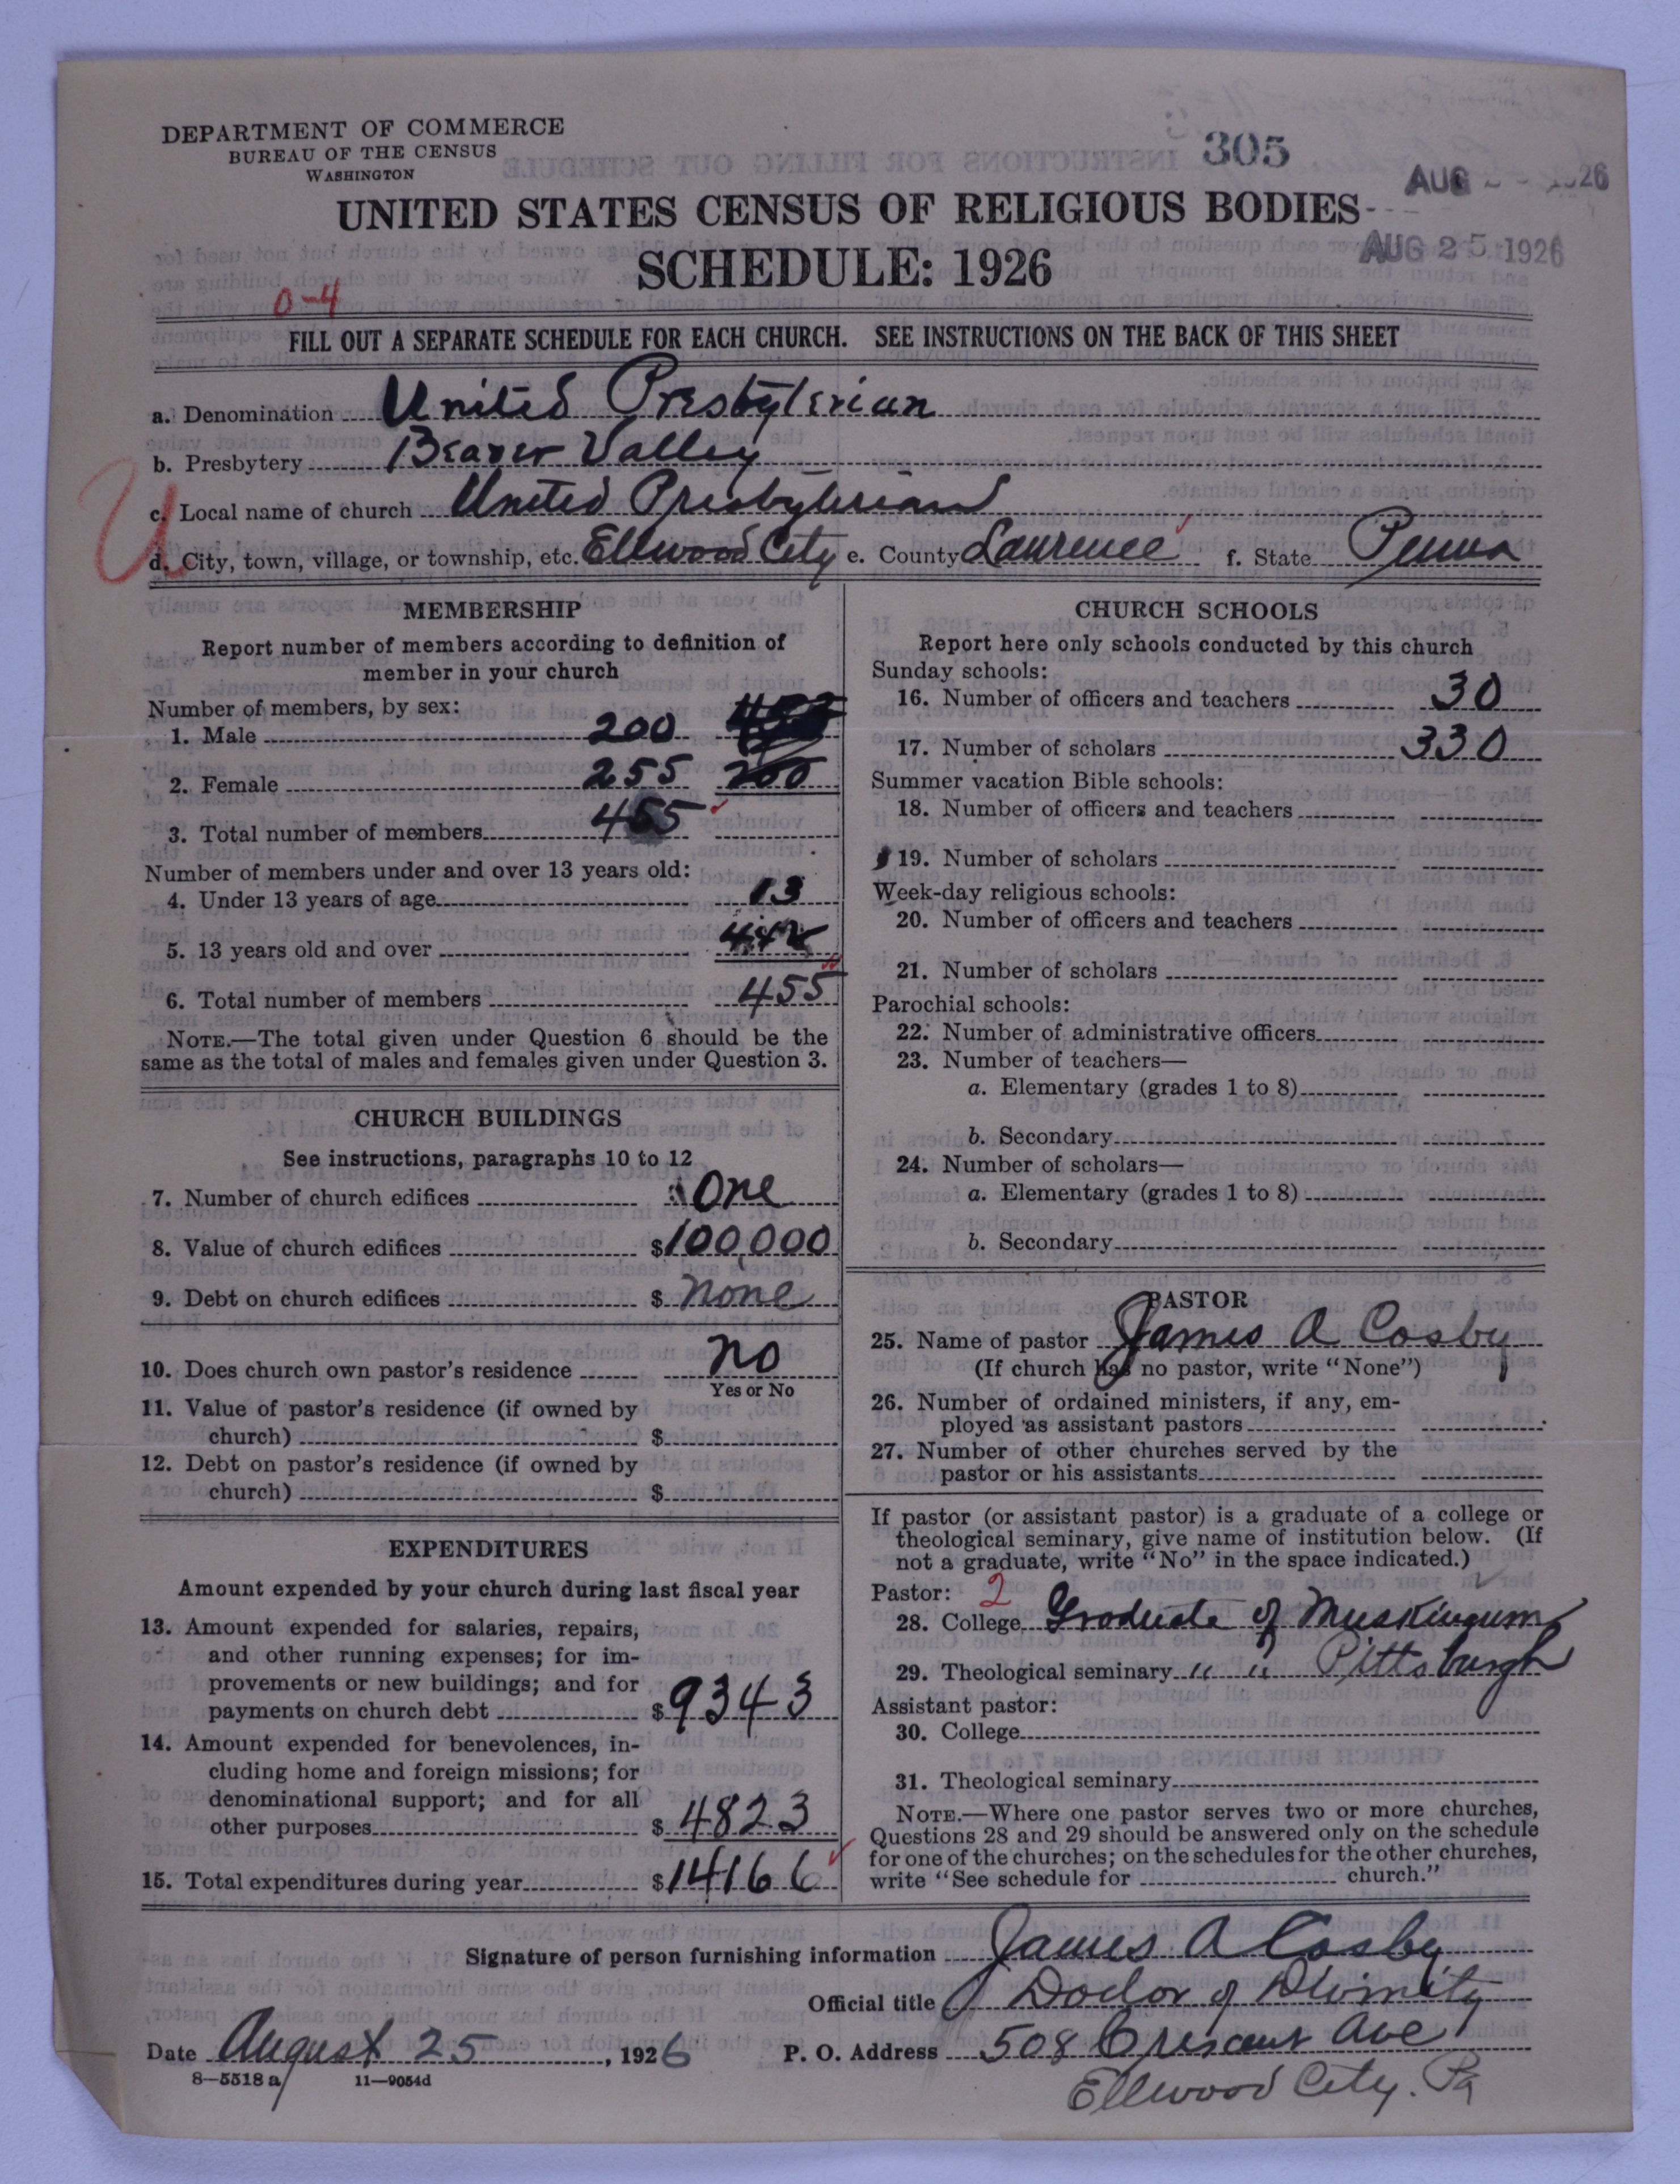 DEPARTMENT OF COMMERCE
BUREAU OF THE CENSUS
WASHINGTON
305
AUG 1926
UNITED STATES CENSUS OF RELIGIOUS BODIES
AUG 25 1926
SCHEDULE: 1926
0-4
FILL OUT A SEPARATE SCHEDULE FOR EACH CHURCH. SEE INSTRUCTIONS ON THE BACK OF THIS SHEET
a. Denomination United Presbyterian
b. Presbytery Beaver Valley
U
c. Local name of church United Presbyterian
d. City, town, village, or township, etc. Ellwood City e. County Lawrence f. State Penna
MEMBERSHIP
Report number of members according to definition of
member in your church
Number of members, by sex:
1. Male 200
2. Female 255 200
3. Total number of members 455
Number of members under and over 13 years old:
4. Under 13 years of age 13
5. 13 years old and over 442
6. Total number of members 455
NOTE.—The total given under Question 6 should be the
same as the total of males and females given under Question 3.
CHURCH BUILDINGS
See instructions, paragraphs 10 to 12
7. Number of church edifices One
8. Value of church edifices $100,000
9. Debt on church edifices $ none
10. Does church own pastor's residence no
Yes or No
11. Value of pastor's residence (if owned by
church) $
12. Debt on pastor's residence (if owned by
church) $
EXPENDITURES
Amount expended by your church during last fiscal year
13. Amount expended for salaries, repairs,
and other running expenses; for im-
provements or new buildings; and for
payments on church debt $9343
14. Amount expended for benevolences, in-
cluding home and foreign missions; for
denominational support; and for all
other purposes $4823
15. Total expenditures during year $14166
CHURCH SCHOOLS
Report here only schools conducted by this church
Sunday schools:
16. Number of officers and teachers 30
17. Number of scholars 330
Summer vacation Bible schools:
18. Number of officers and teachers
19. Number of scholars
Week-day religious schools:
20. Number of officers and teachers
21. Number of scholars
Parochial schools:
22. Number of administrative officers
23. Number of teachers—
a. Elementary (grades 1 to 8)
b. Secondary
24. Number of scholars—
a. Elementary (grades 1 to 8)
b. Secondary
PASTOR
25. Name of pastor James A Cosby
(If church has no pastor, write "None")
26. Number of ordained ministers, if any, em-
ployed as assistant pastors
27. Number of other churches served by the
pastor or his assistants
If pastor (or assistant pastor) is a graduate of a college or
theological seminary, give name of institution below. (If
not a graduate, write "No" in the space indicated.)
Pastor: 2
28. College Graduate of Muskingum
29. Theological seminary " " Pittsburgh
Assistant pastor:
30. College
31. Theological seminary
NOTE.—Where one pastor serves two or more churches,
Questions 28 and 29 should be answered only on the schedule
for one of the churches; on the schedules for the other churches,
write "See schedule for church."
Signature of person furnishing information James A Cosby
Official title Doctor of Divinity
Date August 25, 1926 P. O. Address 508 Crescent Ave
8—5518 a 11—9054d
Ellwood City. Pa